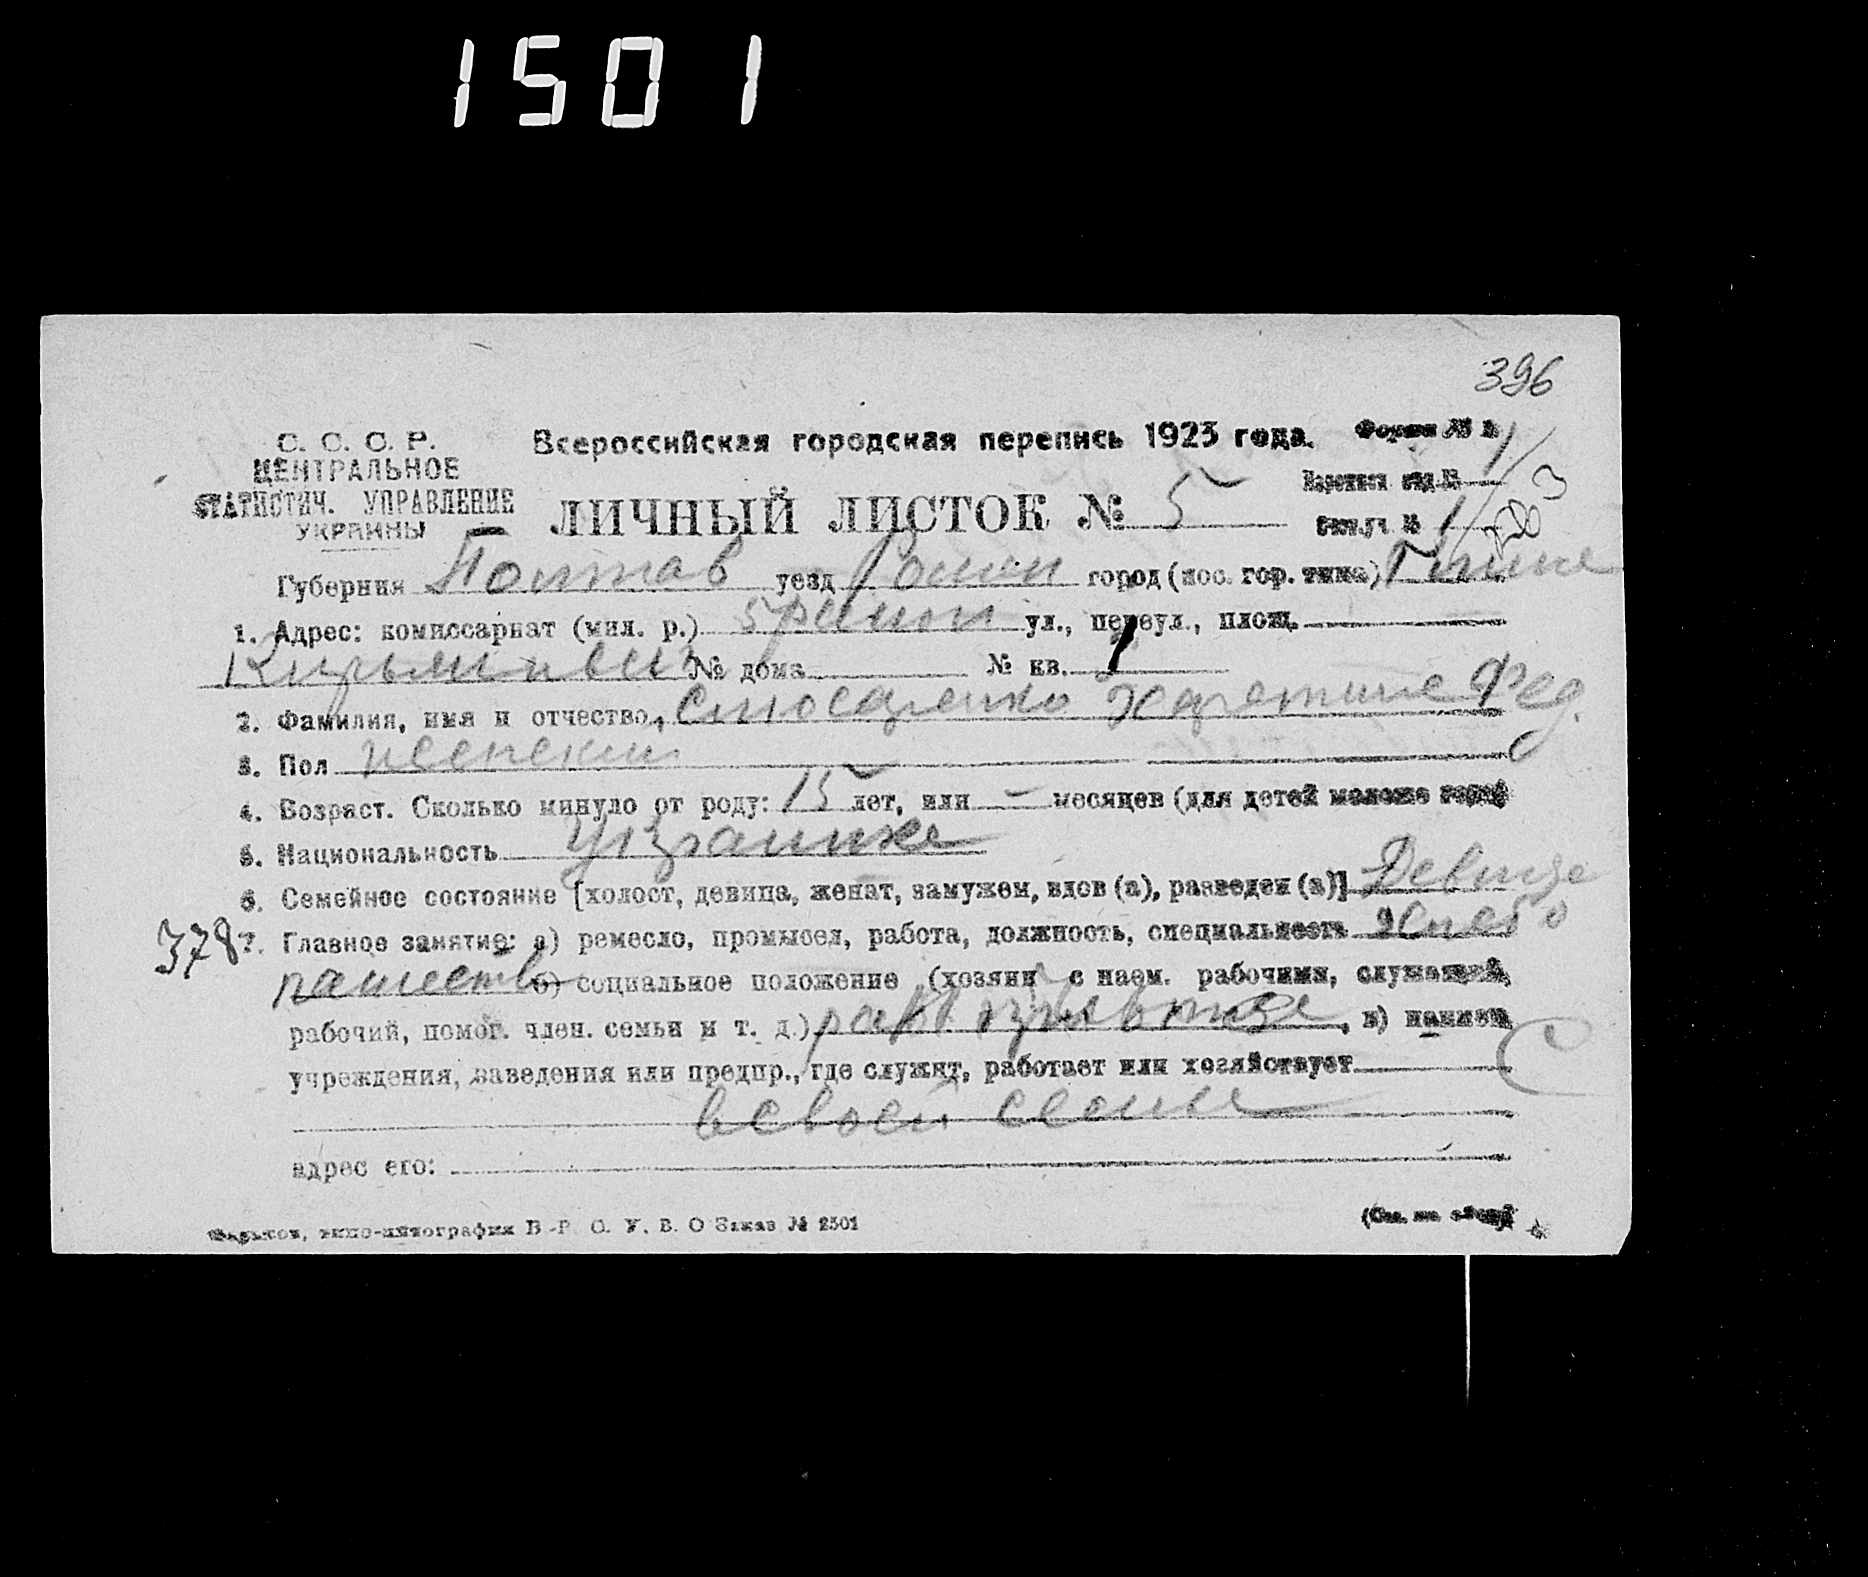 1501
396
С. С. С. Р.
ЦЕНТРАЛЬНОЕ
СТАТИСТИЧ. УПРАВЛЕНИЕ
УКРАИНЫ
Всероссийская городская перепись 1923 года.
Форма № 1
ЛИЧНЫЙ ЛИСТОК № 5
Губерния Полтав уезд Ромен город (пос. гор. типа)
1. Адрес: комиссариат (мил. р.) 5 район ул., переул., площ.
№ дома № кв. 1
2. Фамилия, имя и отчество, Слюсаренко Харетина Фед.
3. Пол женский
4. Возраст. Сколько минуло от роду: 15 лет, или – месяцев (для детей моложе года)
5. Национальность Украинка
6. Семейное состояние [холост, девица, женат, замужем, вдов (а), разведен (а)] Девица
378 7. Главное занятие: а) ремесло, промысел, работа, должность, специальность хлебо
пашеств б) социальное положение (хозяин с наем. рабочими, служащий,
рабочий, помог. член. семьи и т. д.) , в) наимен.
учреждения, заведения или предпр., где служит, работает или хозяйствует
в своей семье
адрес его:
Харьков, типо-литография В.-Р. О. У. В. О Заказ № 2501
(См. на обор.)